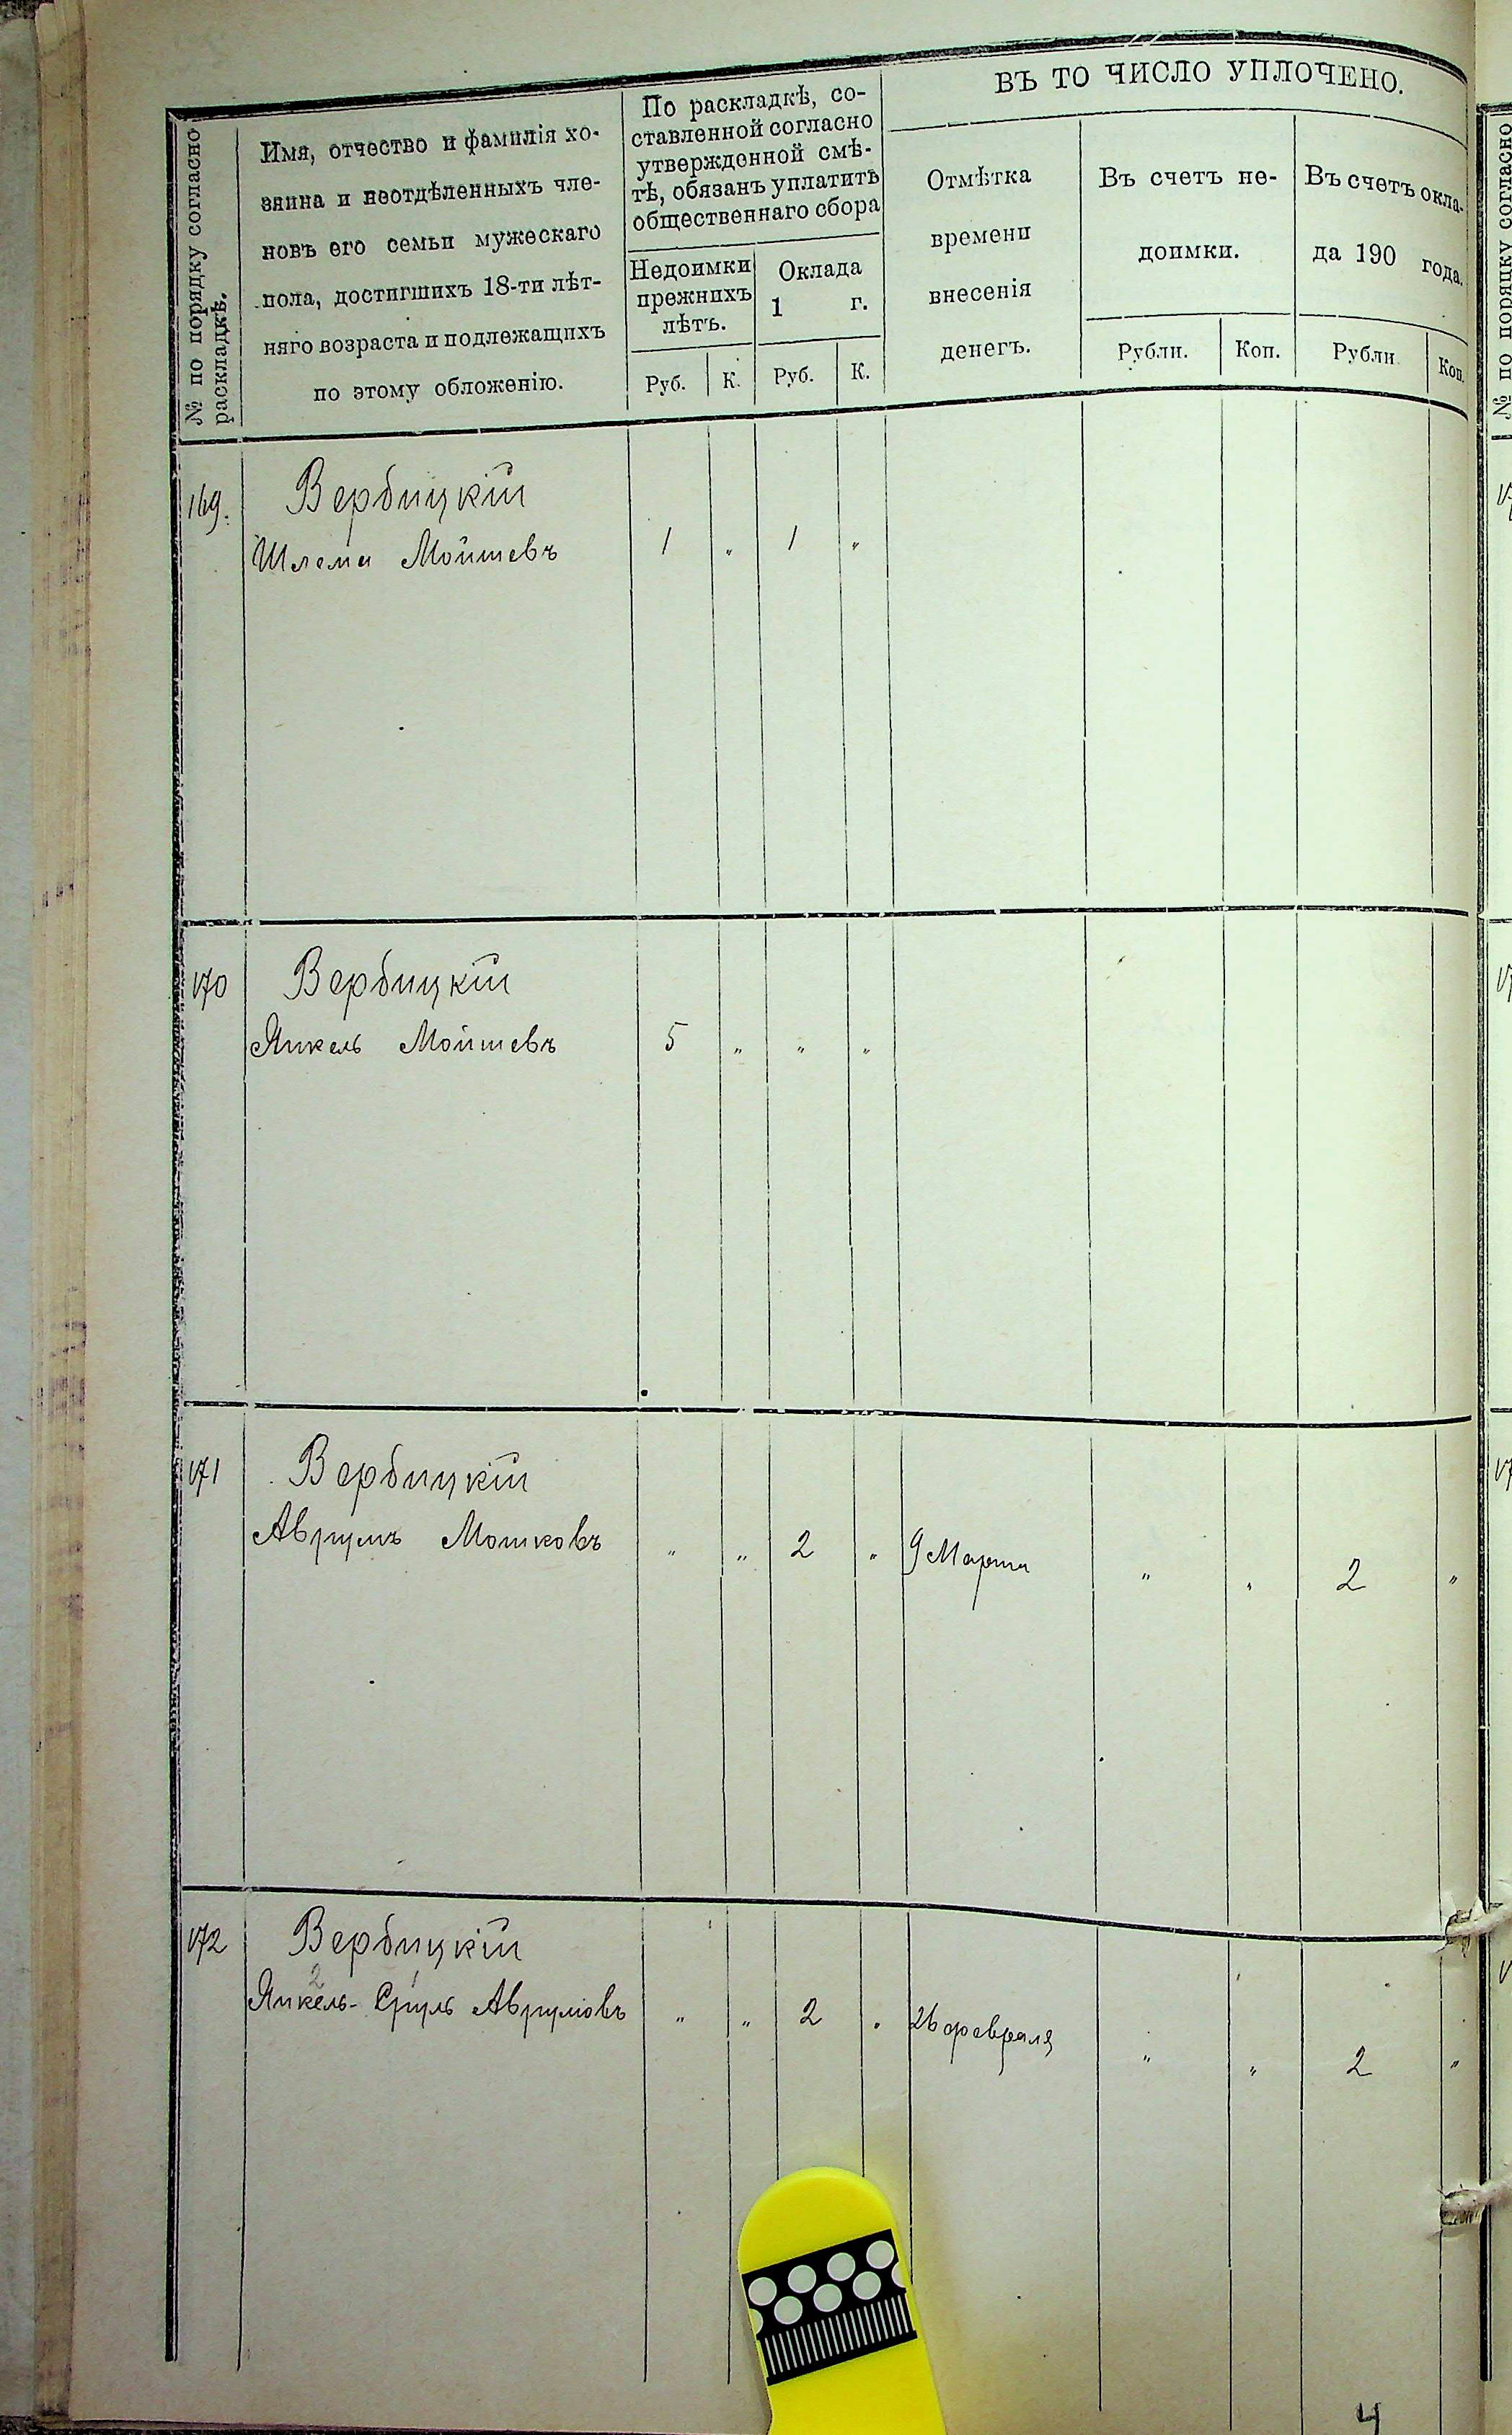 № по порядку согласно
раскладкѣ.
Имя, отчество и фамилія хо-
зяина и неотдѣленныхъ чле-
новъ его семьи мужескаго
пола, достигшихъ 18-ти лѣт-
няго возраста и подлежащихъ
по этому обложенію.
По раскладкѣ, со-
ставленной согласно
утвержденной смѣ-
тѣ, обязанъ уплатить
общественнаго сбора
Недоимки
прежнихъ
лѣтъ.
Оклада
1 г.
Руб. К. Руб. К.
ВЪ ТО ЧИСЛО УПЛОЧЕНО.
Отмѣтка
времени
внесенія
денегъ.
Въ счетъ не-
доимки.
Рубли. Коп.
Въ счетъ окла-
да 190 года.
Рубли Коп.
169. Вербицкій
Шлема Мойшевъ 1 „ 1 „
170 Вербицкій
Янкель Мойшевъ 5 „ „ „
171 Вербицкій
Аврумъ Мошковъ „ „ 2 „ 9 Марта „ „ 2 „
172 Вербицкій
2
Янкель-Сруль Аврумовъ „ „ 2 „ 26 февраля „ „ 2 „
4
№ по порядку согласно